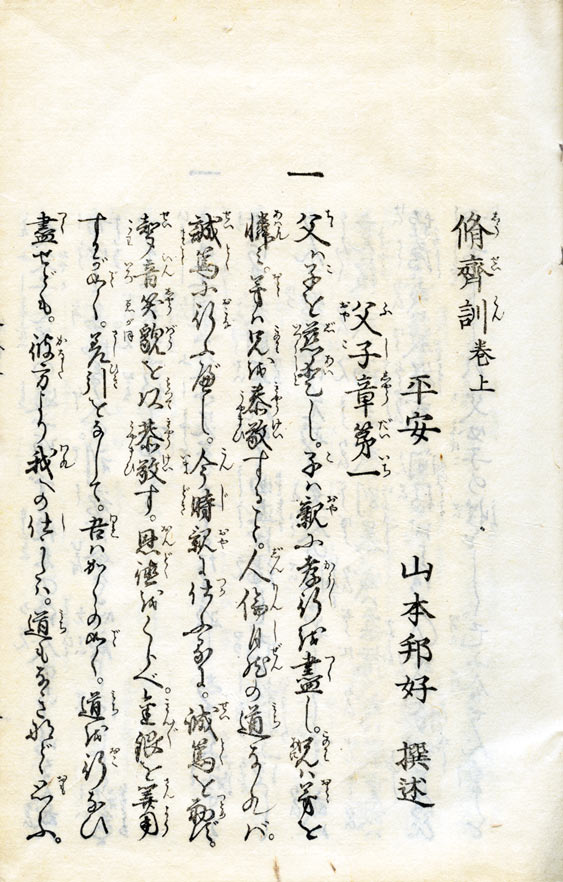 脩齊訓巻上
平安　山本邦好　撰述
父子章第一
一
父ハ子を慈愛し。子ハ親に孝行を盡し。兄ハ弟を
憐み。弟ハ兄を恭敬すること。人倫自然の道なれバ。
誠篤に行ふべし。今時親に仕ふるに。誠篤を勤めず。
聲音笑貌を以恭敬す。恩德をくらべ。金銀を算用
するが如く。差引をなして。吾ハかくの如く。道を行ひ
盡せども。彼方より我への仕かたハ。道もなきなど思ふ。